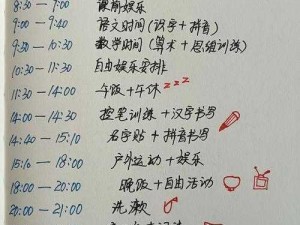 8:30 — 9:00 课前娱乐
9:00 — 9:40 语文时间(识字+拼音)
9:50 — 10:30 数学时间(算术+思维训练)
10:30 — 11:30 自由娱乐安排
11:30 — 14:00 午饭+午休 zzz
14:00 — 14:30 控笔训练+汉字书写
14:40 — 15:10 名字贴+拼音书写
15:10 — 18:00 户外运动+娱乐
18:00 — 20:00 晚饭+自由活动
20:00 — 21:00 洗漱